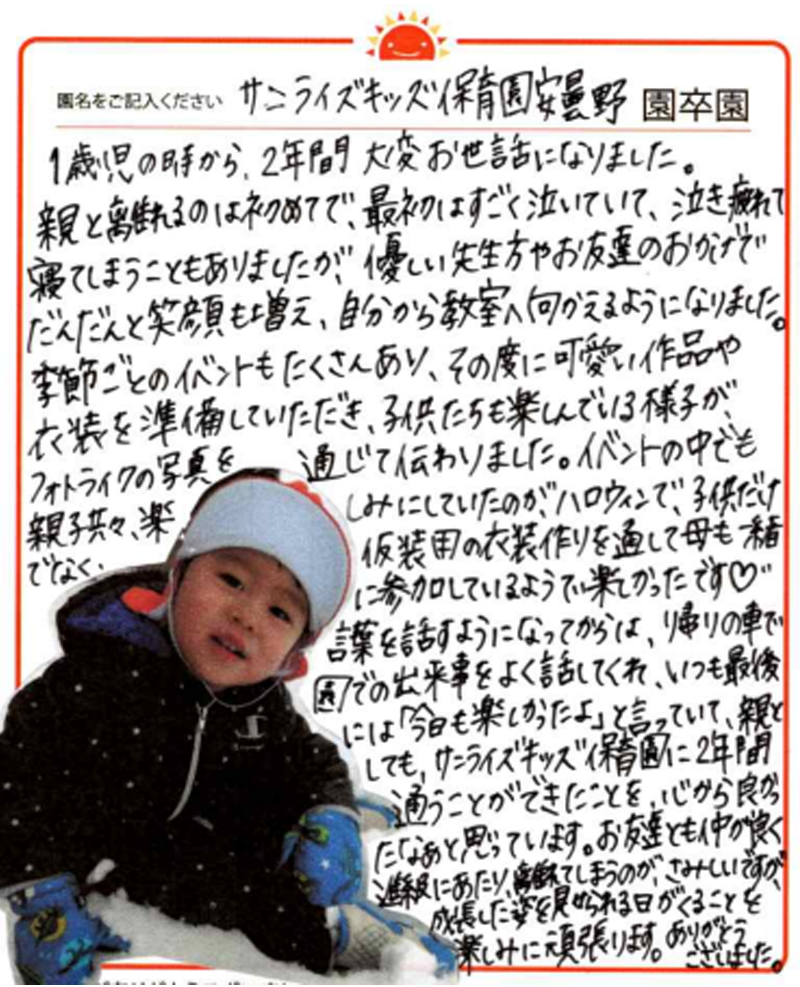 園名をご記入ください サンライズキッズ保育園安曇野 園卒園
1歳児の時から、2年間大変お世話になりました。
親と離れるのは初めてで、最初はすごく泣いていて、泣き疲れて
寝てしまうこともありましたが、優しい先生方やお友達のおかげで
だんだんと笑顔も増え、自分から教室へ向かえるようになりました。
季節ごとのイベントもたくさんあり、その度に可愛い作品や
衣装を準備していただき、子供たちも楽しんでいる様子が、
フォトライクの写真を 通じて伝わりました。イベントの中でも
親子共々、楽 しみにしていたのが、ハロウィンで、子供だけ
でなく、 仮装用の衣装作りを通して母も一緒
に参加しているようで楽しかったです♡
言葉を話すようになってからは、帰りの車で
園での出来事をよく話してくれ、いつも最後
には「今日も楽しかったよ」と言っていて、親と
しても、サンライズキッズ保育園に2年間
通うことができたことを、心から良かっ
たなあと思っています。お友達とも仲が良く
進級にあたり、離れてしまうのが、さみしいですが、
成長した姿を見せられる日がくることを
楽しみに頑張ります。ありがとう
ございました。